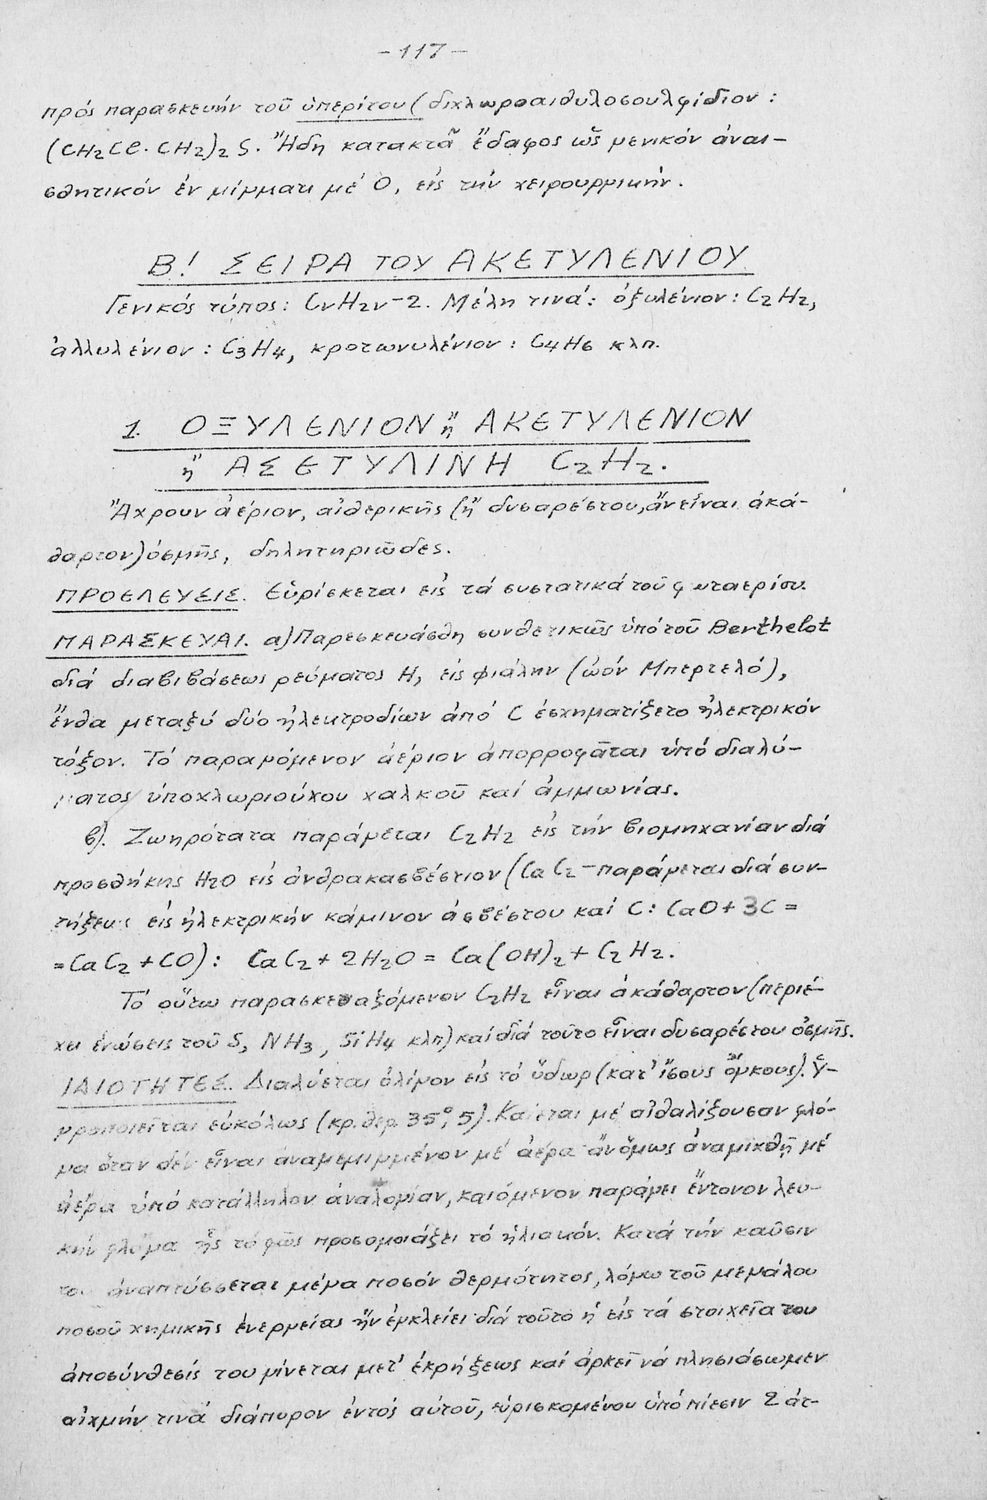 -117-
πρός παρασκευήν τοῦ ὑπερίτου (διχλωροαιθυλοσουλφίδιον :
(CH₂Cl·CH₂)₂S. Ἤδη κατακτᾶ ἔδαφος ὡς γενικόν ἀναι-
σθητικόν ἐν μίγματι μέ O, εἰς τήν χειρουργικήν.
Β! ΣΕΙΡΑ ΤΟΥ ΑΚΕΤΥΛΕΝΙΟΥ
Γενικός τύπος: CνH₂ν-2. Μέλη τινά: ὀξυλένιον: C₂H₂,
ἀλλυλένιον : C₃H₄, κροτωνυλένιον : C₄H₆ κλπ.
1. ΟΞΥΛΕΝΙΟΝ ἤ ΑΚΕΤΥΛΕΝΙΟΝ
ἤ ΑΣΕΤΥΛΙΝΗ C₂H₂.
Ἄχρουν ἀέριον, αἰθερικῆς (ἤ δυσαρέστου, ἄν εἶναι ἀκά-
θαρτον) ὀσμῆς, δηλητηριῶδες.
ΠΡΟΕΛΕΥΣΙΣ. Εὑρίσκεται εἰς τά συστατικά τοῦ φωταερίου.
ΠΑΡΑΣΚΕΥΑΙ. α) Παρεσκευάσθη συνθετικῶς ὑπό τοῦ Berthelot
διά διαβιβάσεως ρεύματος H, εἰς φιάλην (ὠόν Μπερτελό),
ἔνθα μεταξύ δύο ἠλεκτροδίων ἀπό C ἐσχηματίζετο ἠλεκτρικόν
τόξον. Τό παραγόμενον ἀέριον ἀπορροφᾶται ὑπό διαλύ-
ματος ὑποχλωριούχου χαλκοῦ καί ἀμμωνίας.
β). Ζωηρότατα παράγεται C₂H₂ εἰς τήν βιομηχανίαν διά
προσθήκης H₂O εἰς ἀνθρακασβέστιον (CaC₂ - παράγεται διά συν-
τήξεως εἰς ἠλεκτρικήν κάμινον ἀσβέστου καί C: CaO + 3C =
= CaC₂ + CO) : CaC₂ + 2H₂O = Ca(OH)₂ + C₂H₂.
Τό οὕτω παρασκευαζόμενον C₂H₂ εἶναι ἀκάθαρτον (περιέ-
χει ἑνώσεις τοῦ S, NH₃, SiH₄ κλπ) καί διά τοῦτο εἶναι δυσαρέστου ὀσμῆς.
ΙΔΙΟΤΗΤΕΣ. Διαλύεται ὀλίγον εἰς τό ὕδωρ (κατ' ἴσους ὄγκους). Ὑ-
γροποιεῖται εὐκόλως (κρ. θερ. 35°,5). Καίεται μέ αἰθαλίζουσαν φλό-
γα ὅταν δέν εἶναι ἀναμεμιγμένον μέ ἀέρα ἄν ὅμως ἀναμιχθῇ μέ
ἀέρα ὑπό κατάλληλον ἀναλογίαν, καιόμενον παράγει ἔντονον λευ-
κήν φλόγα ἧς τό φῶς προσομοιάζει τό ἡλιακόν. Κατά τήν καῦσιν
του ἀναπτύσσεται μέγα ποσόν θερμότητος, λόγω τοῦ μεγάλου
ποσοῦ χημικῆς ἐνεργείας ἥν ἐγκλείει διά τοῦτο ἡ εἰς τά στοιχεῖα του
ἀποσύνθεσίς του γίνεται μετ' ἐκρήξεως καί ἀρκεῖ νά πλησιάσωμεν
αἰχμήν τινά διάπυρον ἐντός αὐτοῦ, εὑρισκομένου ὑπό πίεσιν 2 ἀτ-